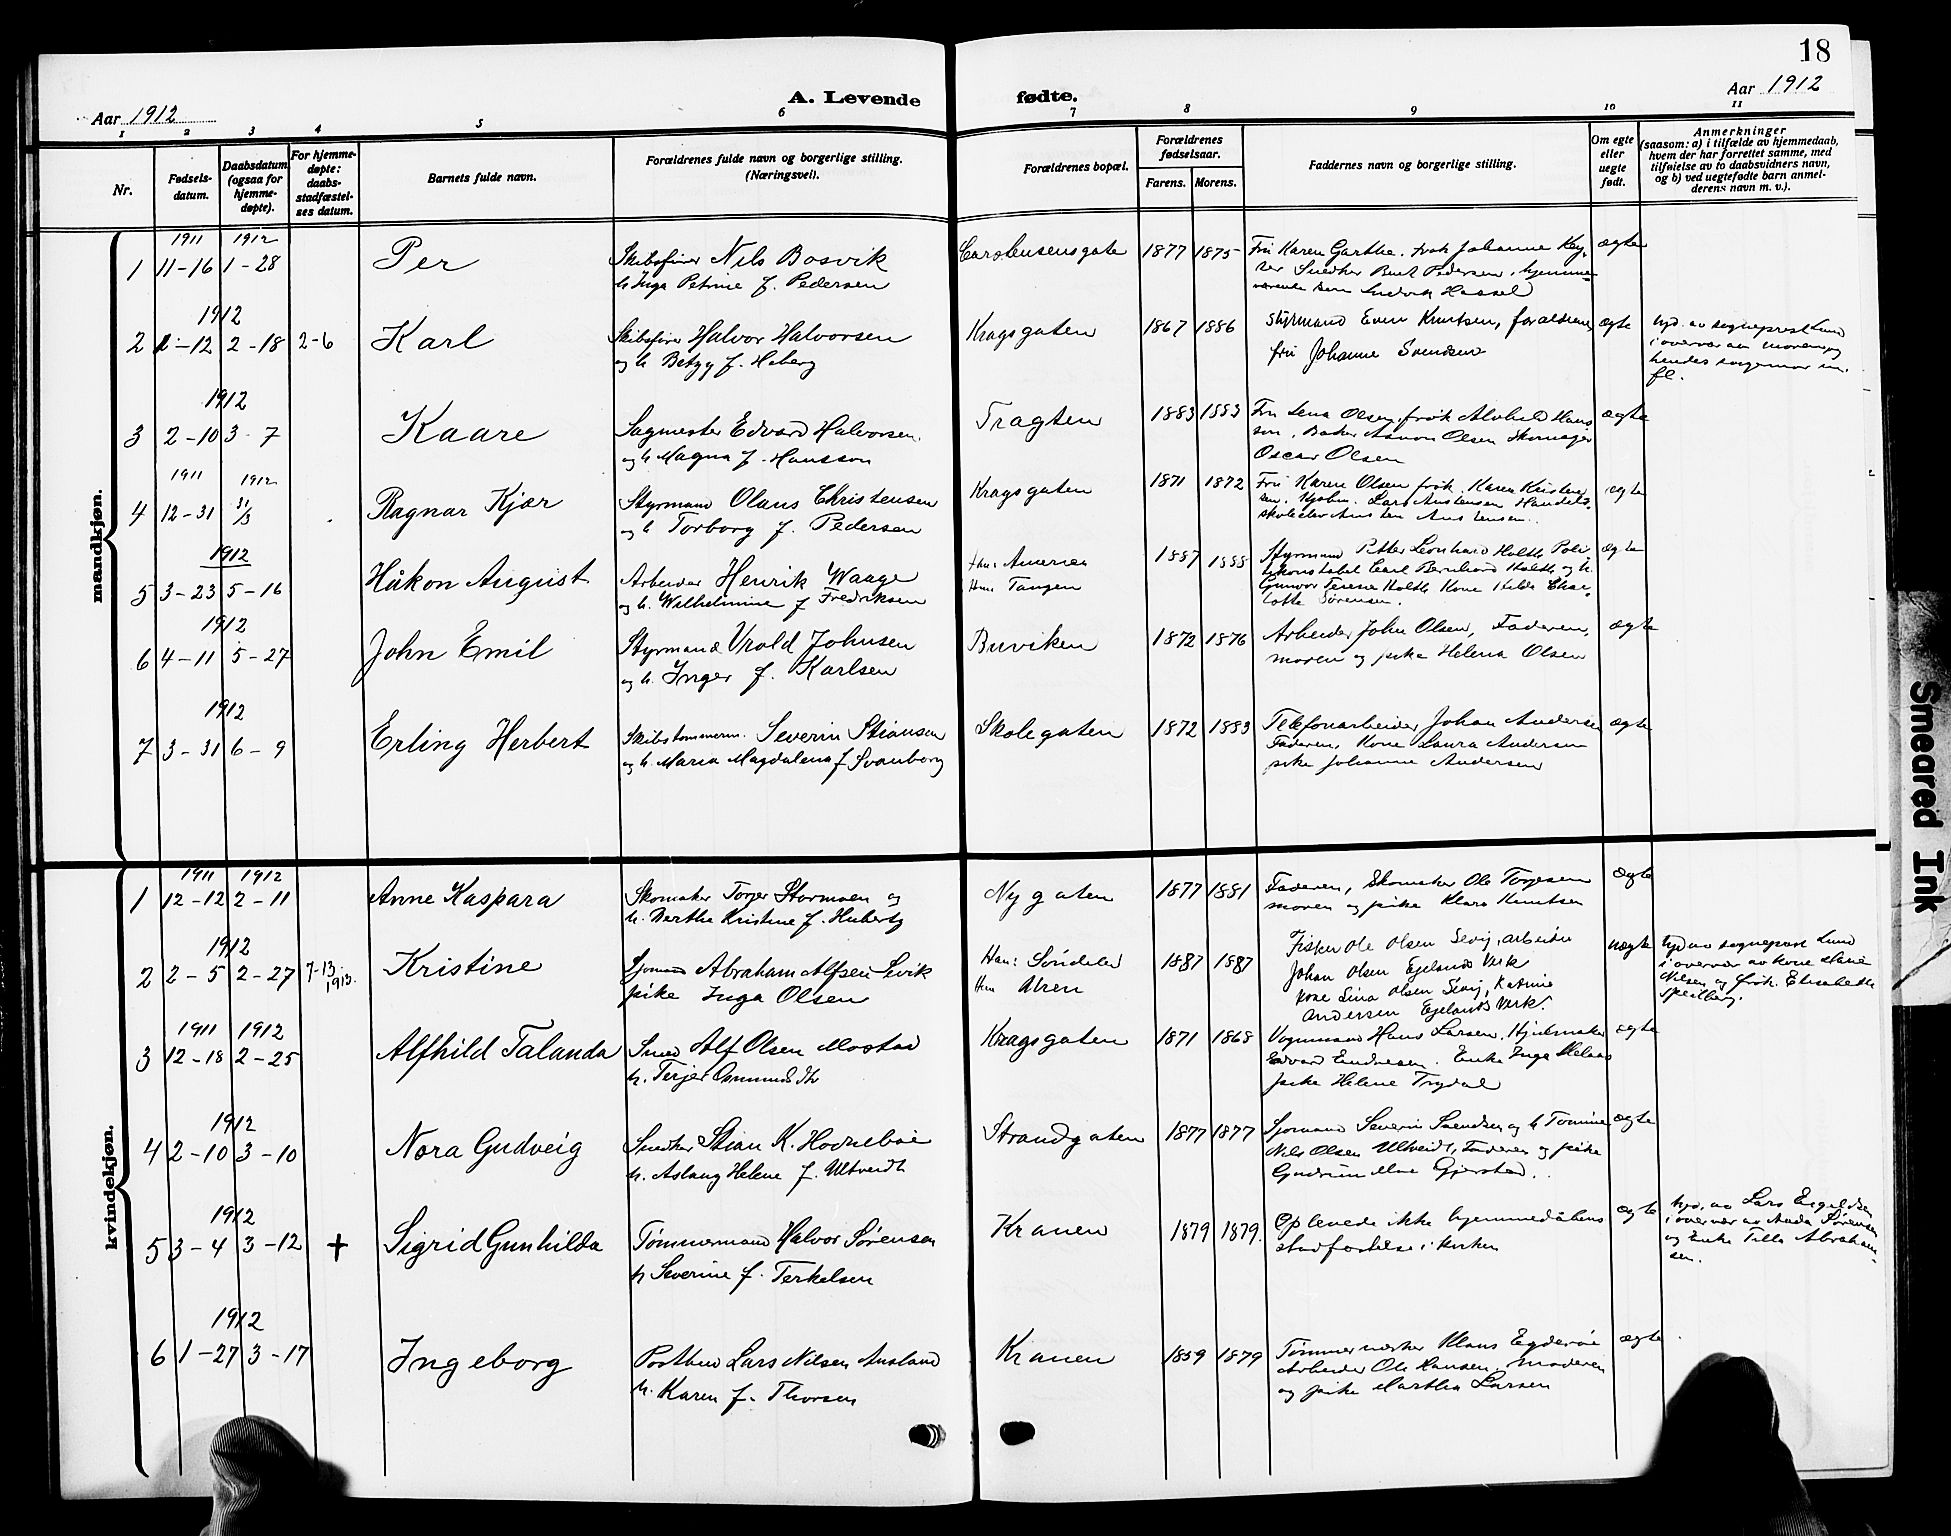 18
Aar 1912
A. Levende fødte.
Aar 1912
1 2 3 4 5 6 7 8 9 10 11
Nr.
Fødsels-
datum.
Daabsdatum
(ogsaa for
hjemme-
døpte).
For hjemme-
døpte:
daabs-
stadfæstel-
ses datum.
Barnets fulde navn.
Forældrenes fulde navn og borgerlige stilling.
(Næringsvei).
Forældrenes bopæl.
Forældrenes
fødselsaar.
Farens. Morens.
Faddernes navn og borgerlige stilling.
Om egte
eller
uegte
født.
Anmerkninger
(saasom: a) i tilfælde av hjemmedaab,
hvem der har forrettet samme, med
tilføielse av to daabsvidners navn,
og b) ved uegtefødte barn anmel-
derens navn m. v.).
mandkjøn.
1911 1912
1 11-16 1-28 Per
Skibsfører Nils Bosvik
h. Inga Petrine f. Pedersen
Carstensensgate 1877 1875
Fru Karen Garthe, frøk Johanne Key-
ser Snedker Berth Pedersen, hjemme-
værende søn Ludvik Hassel
ægte
1912
2 1-12 2-18 2-6 Karl
Skibsfører Halvor Halvorsen
og h. Betzy f. Heberg
Kragsgaten 1867 1886
Styrmand Even Knutsen, forældrene
fru Johanne Svendsen
ægte
hjd. av sogneprest Lund
i overvær av moren og
hendes svigermor m.
fl.
1912
3 2-10 3-7 Kaare
Sagmester Edvard Halvorsen
og h. Magna f. Hansson
Tragten 1883 1883
Fru Lena Olsen, frøk Alvhild Hans
son, Baker Aanon Olsen Skomager
Oscar Olsen
ægte
1911 1912
4 12-31 31/3 Ragnar Kjær
Styrmand Olaus Christensen
og h. Torborg f. Pedersen
Kragsgaten 1871 1872
Fru Karen Olsen frøk. Karen Kristen
sen, Kjøbm. Lars Austensen Handels-
skoleelev Austen Austensen.
ægte
1912
5 3-23 5-16 Håkon August
Arbeider Henrik Waage
og h. Wilhelmine f Fredriksen
Han: America
Hun: Tangen
1887 1888
Styrmand Petter Leonhard Holth Poli-
tikonstabel Carl Bernhard Holdth og h.
Gunvor Teresie Holdth Kone Hilda Char-
lotte Sørensen.
ægte
1912
6 4-11 5-27 John Emil
Styrmand Vrold Johnsen
og h. Inger f. Karlsen
Buviken 1872 1876
Arbeider John Olsen, Faderen,
moren og pike Helena Olsen
ægte
1912
7 3-31 6-9 Erling Herbert
Skibstømmerm. Severin Stiansen
og h. Maria Magdalena f Svanborg
Skolegaten 1872 1883
Telefonarbeider Johan Andersen
Faderen, Kone Laura Andersen
pike Johanne Andersen
ægte
kvindekjøn.
1911 1912
1 12-12 2-11 Anne Kaspara
Skomaker Torjer Stormoen og
h. Berthe Kristine f. Hubertz
Nygaten 1877 1881
Faderen, Skomaker Ole Torjesen
moren og pike Klara Knutsen
Ægte
1912
2 2-5 2-27 7-13 1913. Kristine
Sjømand Abraham Alfsen Sevik
pike Inga Olsen
Han: Søndeled
Hun Alren
1887 1887
Fisker Ole Olsen Sevig, arbeider
Johan Olsen Egelands Verk
kone Sina Olsen Sevig, Katrine
Andersen Egelands Verk.
uægte
hjd av sogneprest Lund
i overvær av kone Stine
Nilsen og frøk. Elisabeth
Speilberg.
1911 1912
3 12-18 2-25 Alfhild Talanda
Smed Alf Olsen Mostad
h. Terjer Osmundsdtr
Kragsgaten 1871 1868
Vognmand Hans Larsen, Hjulmaker
Edvard Endresen. Enke Inga
pike Helene Trydal
ægte
1912
4 2-10 3-10 Nora Gudveig
Snedker Stian K. Hovneboe
h. Aslaug Helene f. Ultveidt
Strandgaten 1877 1877
Sjømand Severin Svendsen og h Tomine
Nils Olsen Ultveidt, Faderen og pike
Gudrun Elne Gjerstad.
ægte
1912
5 3-4 3-12 + Sigrid Gunhilda
Tømmermand Halvor Sørensen
h Severine f. Terkelsen
Kranen 1879 1879.
Oplevede ikke hjemmedåbens
stadfæstelse i kirken
ægte
hjd. av Lars Engeldsen
i overvær av Anda Sørensen
og Enke Tilla Abraham-
sen.
1912
6 1-27 3-17 Ingeborg
Postbud Lars Nilsen Ausland
h. Karen f. Thorsen
Kranen 1859 1879
Tømmermester Klaus Egderøe
Arbeider Ole Hansen, moderen
og pike Martha Larsen
ægte
Smeared Ink